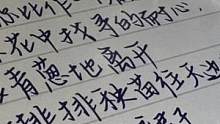 比作
花中扶手的耐心,
青葱地离开
排排秧苗往天边